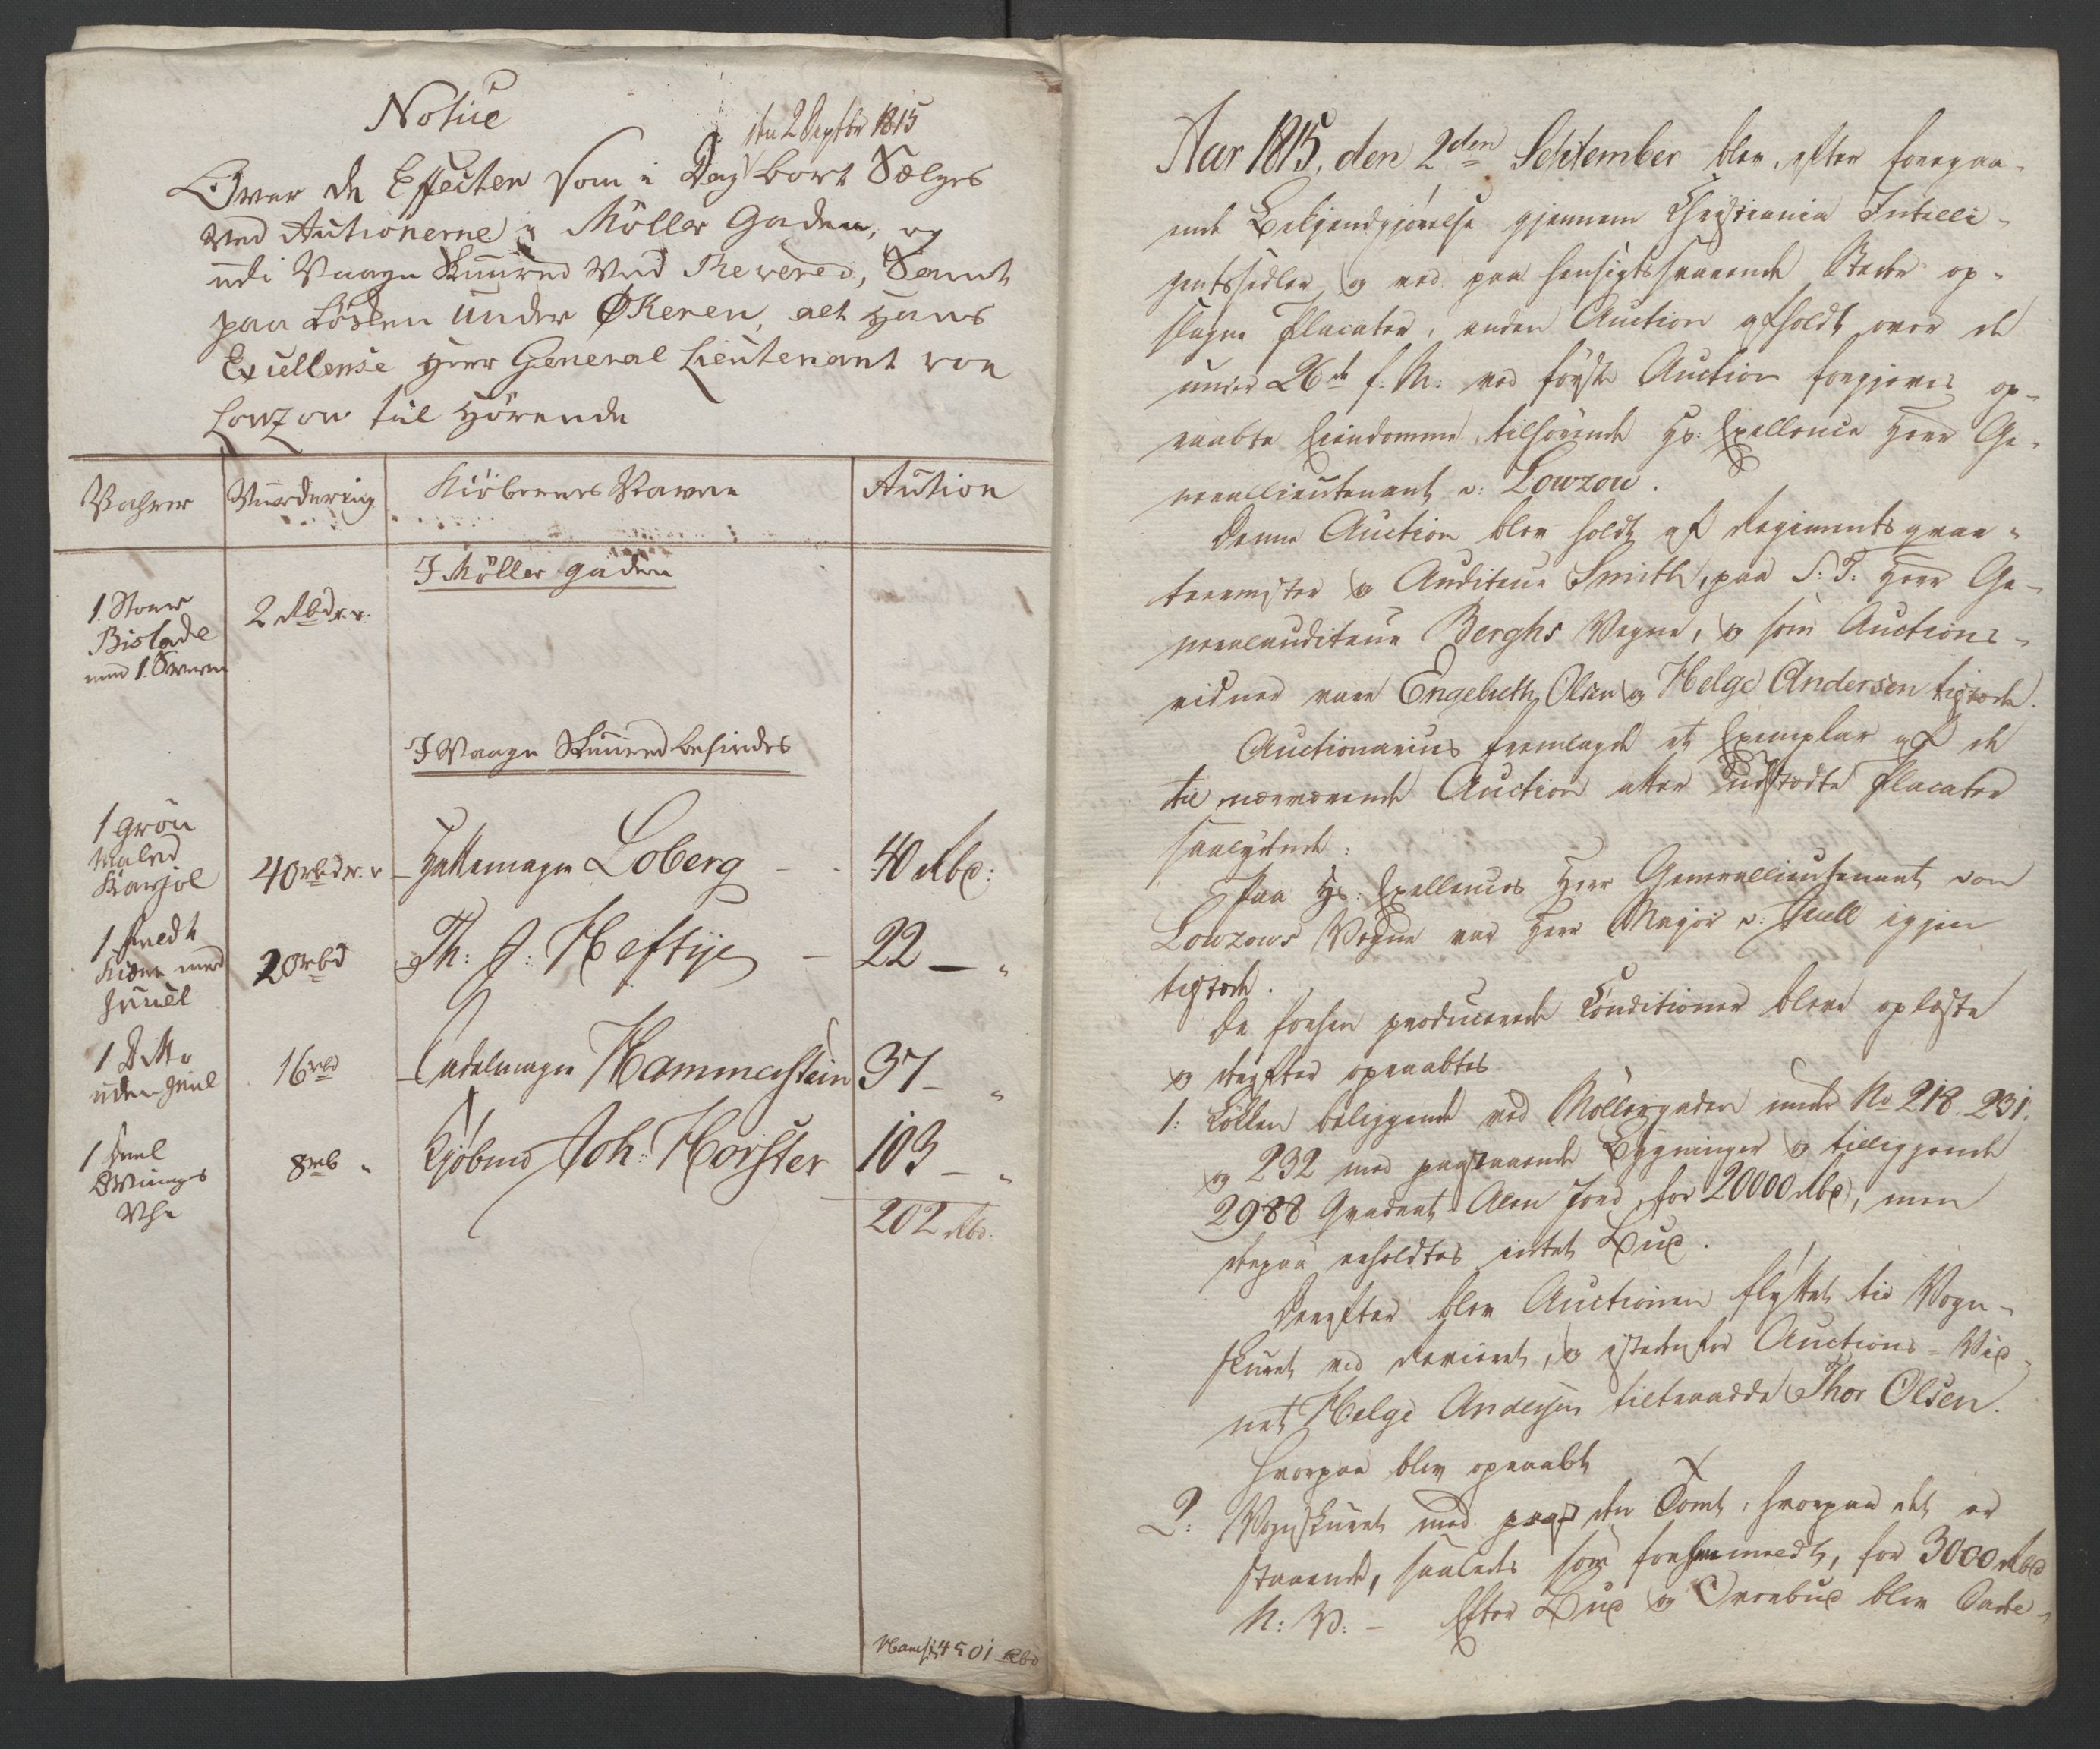 Notice
den 2 Septbr 1815
Over de Effecter som i Dag bort Sælges
ved Auctionerne i Möller Gaden, og
udi Vaagn Skuured ved Revered, Samt
paa Lösken under Økeren, alt Hans
Exellense Herr General Lieutenant von
Lowzow til Hörende
Vahrer
Vuordering
Kiöberens Navne
Aution
I Möller gaden
1 Stover
Bistade
med 1. Sverm
2 Rbd r. v.
I Vaagn Skuured befindes
1 grön
Maled
Karjol
40 rbd r. v
– Hattemager Loberg – -
40 Rbd:
1 bredt
Kiærre med
Hiuul
20 rbd
Th: J: Heftye –
22 – "
1 Ditto
uden Hiul
16 rbd
– Sadelmager Hammerstein
37 – "
1 Hiul
Svinges
Vhn
8 rb "
Kjöbmd Joh: Horster
103 – "
202 Rbd.
4501 Rbd
Aar 1815, den 2den September blev, efter foregaa-
ende Bekjendgjörelse gjennem Christiania Intelli-
gentssedler og ved paa hensigtssvarende Steder op-
slagne Placater, anden Auction afholdt over de
under 26de f. M. ved förste Auction forgjæves op-
raabte Eiendomme, tilhörende Hs. Exellence Herr Ge-
nerallieutenant v: Lowzow.
Denne Auction blev holdt af Regimentsqvar-
teermester og Auditeur Smith, paa S: T: Herr Ge-
neralauditeur Berghs Vegne, og som Auctions-
vidner vare Engebreth Olsen og Helge Andersen tilstæde.
Auctionarius fremlagde et Exemplar af de
til nærværende Auction atter udstædte Placater
saalydende:
Paa Hs: Exellences Herr Generallieutenant von
Lowzows Vegne var Herr Major v: Juell igjen
tilstæde.
De forhen producerede Conditioner bleve oplæste
og derefter opraabtes
1: Lökken beliggende ved Möllergaden under No 218. 231.
og 232 med paastaaende Bygninger og tilliggende
2988 Qvadrat Alen Jord, for 20000 Rbd, men
derpaa erholdtes intet Bud.
Derefter blev Auctionen flyttet til Vogn-
skuret ved Revieret, og istedetfor Auctions-Vid-
net Helge Andersen tiltraadde Thor Olsen.
Hvorpaa blev opraabt
2: Vognskuret med den Tomt, hvorpaa det er
staaende, saaledes som forhen meldt, for 3000 Rbd
N: V: – Efter Bud og Overbud blev Cade-